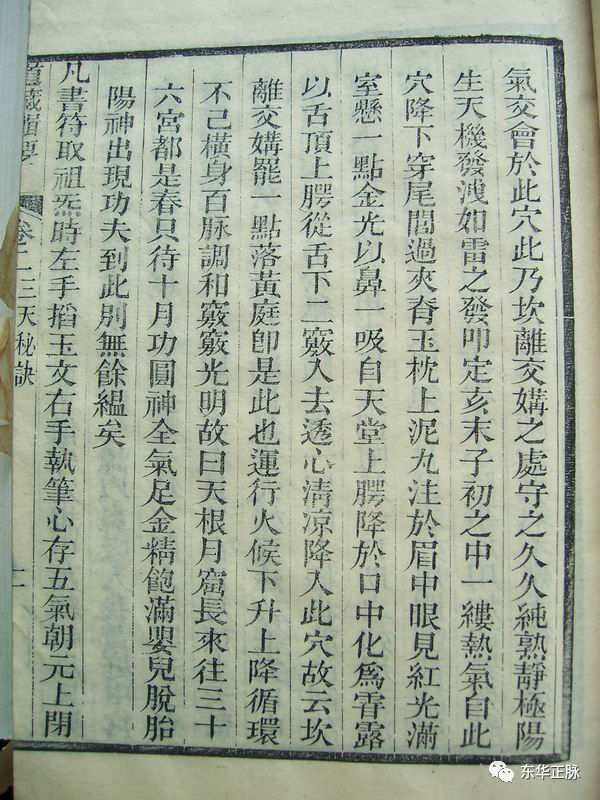 氣交會於此穴此乃坎離交媾之處守之久久純熟靜極陽
生天機發洩如雷之發叩定亥末子初之中一縷熱氣自此
穴降下穿尾閭過夾脊玉枕上泥丸注於眉中眼見紅光滿
室懸一點金光以鼻一吸自天堂上腭降於口中化為霄露
以舌頂上腭從舌下二竅入去透心清凉降入此穴故云坎
離交媾罷一點落黃庭卽是此也運行火候下升上降循環
不已橫身百脉調和竅竅光明故曰天根月窟長來往三十
六宮都是春只待十月功圓神全氣足金精飽滿嬰兒脫胎
陽神出現功夫到此別無餘緼矣
凡書符取祖炁時左手搯玉文右手執筆心存五氣朝元上閉
道藏輯要 卷二三天秘訣
东华正脉